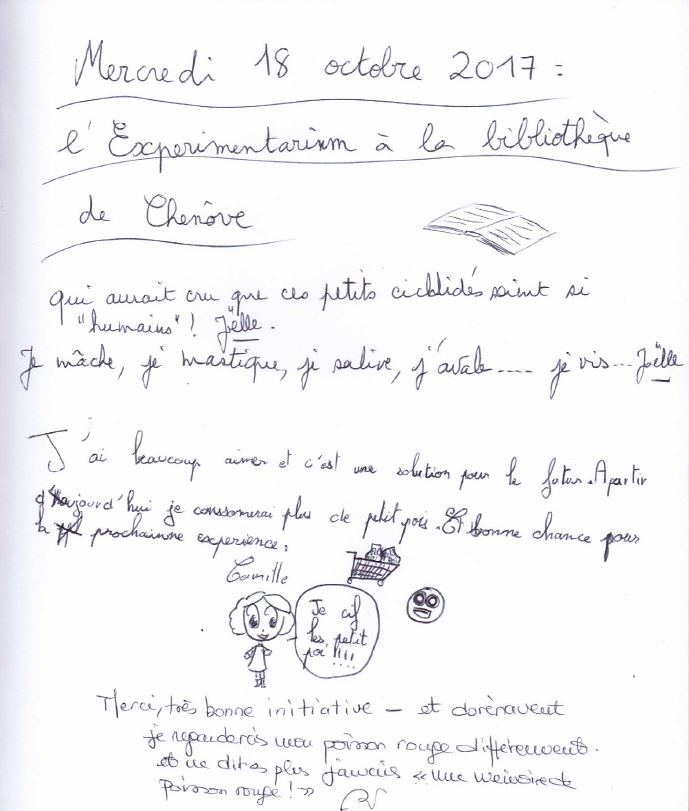 Mercredi 18 octobre 2017 :
l'Experimentarium à la bibliothèque
de Chenôve
qui aurait cru que ces petits cichlidés soient si
"humains" ! Joëlle.
Je mâche, je mastique, je salive, j'avale .... je vis... Joëlle
J'ai beaucoup aimer et c'est une solution pour le futur. Apartir
d'aujourd'hui je consomerai plus de petit pois. Et bonne chance pour
la prochainne experience.
Camille
Je cif
les petit
poi !!!!
Merci, très bonne initiative – et dorénavent
je regarderais mon poisson rouge différemment.
et ne dites plus jamais « une mémoire de
Poisson rouge ! »